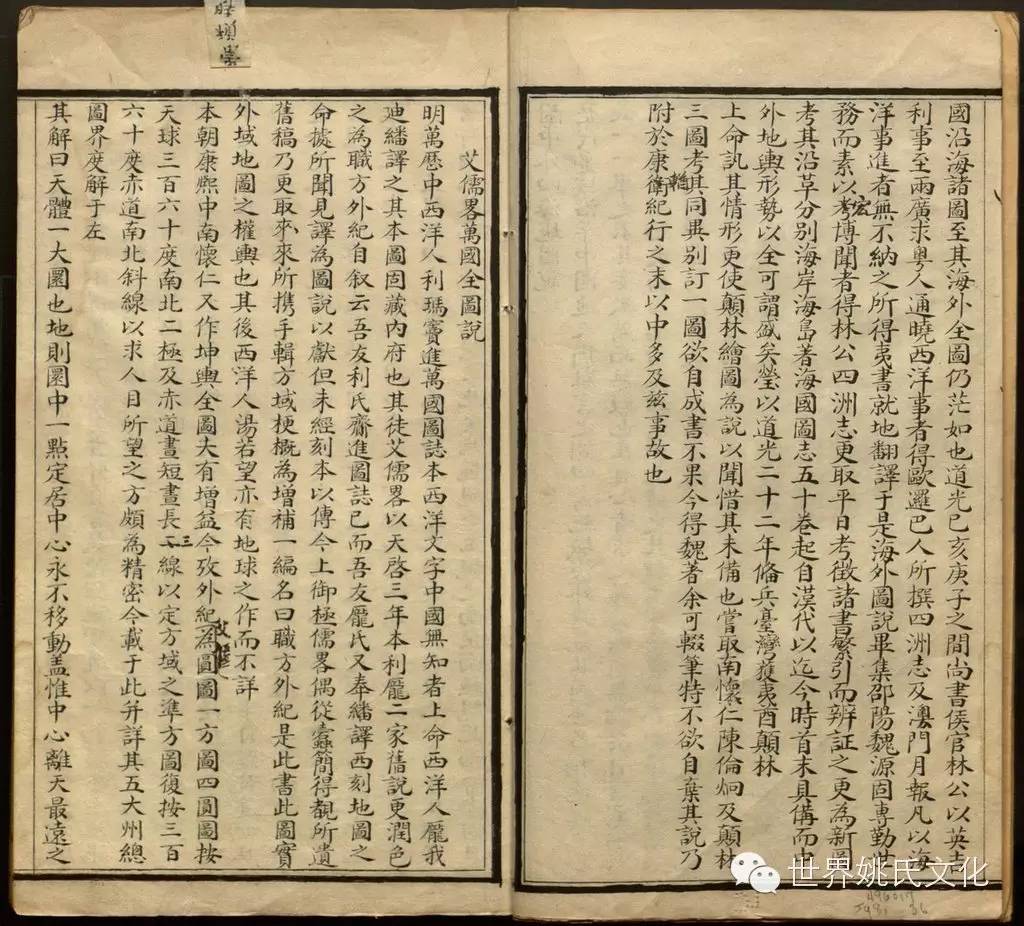 國沿海諸圖至其海外全圖仍茫如也道光己亥庚子之間尚書侯官林公以英吉
利事至兩廣求粵人通曉西洋事者得歐邏巴人所撰四洲志及澳門月報凡以海
洋事進者無不納之所得夷書就地翻譯于是海外圖說畢集邵陽魏源固專勤世
務而素以宏博聞者得林公四洲志更取平日考徵諸書繁引而辨証之更為新圖
考其沿革分別海岸海島著海國圖志五十巻起自漢代以迄今時首末具備而中
外地輿形勢以全可謂盛矣瑩以道光二十二年俻兵臺灣獲夷酋顛林
上命訊其情形更使顛林繪圖為說以聞惜其未備也嘗取南懷仁陳倫炯及顛林
三圖考其同異別訂一圖欲自成書不果今得魏著余可輟筆特不欲自棄其說乃
附於康輶紀行之末以中多及茲事故也
艾儒畧萬國全圖說
明萬歷中西洋人利瑪竇進萬國圖誌本西洋文字中國無知者上命西洋人龐我
迪繙譯之其本圖固藏内府也其徒艾儒畧以天啓三年本利龐二家舊說更潤色
之為職方外紀自叙云吾友利氏齎進圖誌已而吾友龐氏又奉繙譯西刻地圖之
命據所聞見譯為圖說以獻但未經刻本以傳今上御極儒畧偶從蠧簡得覩所遺
舊稿乃更取來所携手輯方域梗概為增補一編名曰職方外紀是此書此圖實
外域地圖之權輿也其後西洋人湯若望亦有地球之作而不詳
本朝康熙中南懷仁又作坤輿全圖大有增益今攷外紀為圓圖一方圖四圓圖按
天球三百六十度南北二極及赤道晝短晝長三線以定方域之準方圖復按三百
六十度赤道南北斜線以求人目所望之方頗為精密今載于此并詳其五大州總
圖界度解于左
其解曰天體一大圜也地則圜中一點定居中心永不移動蓋惟中心離天最遠之
世界姚氏文化